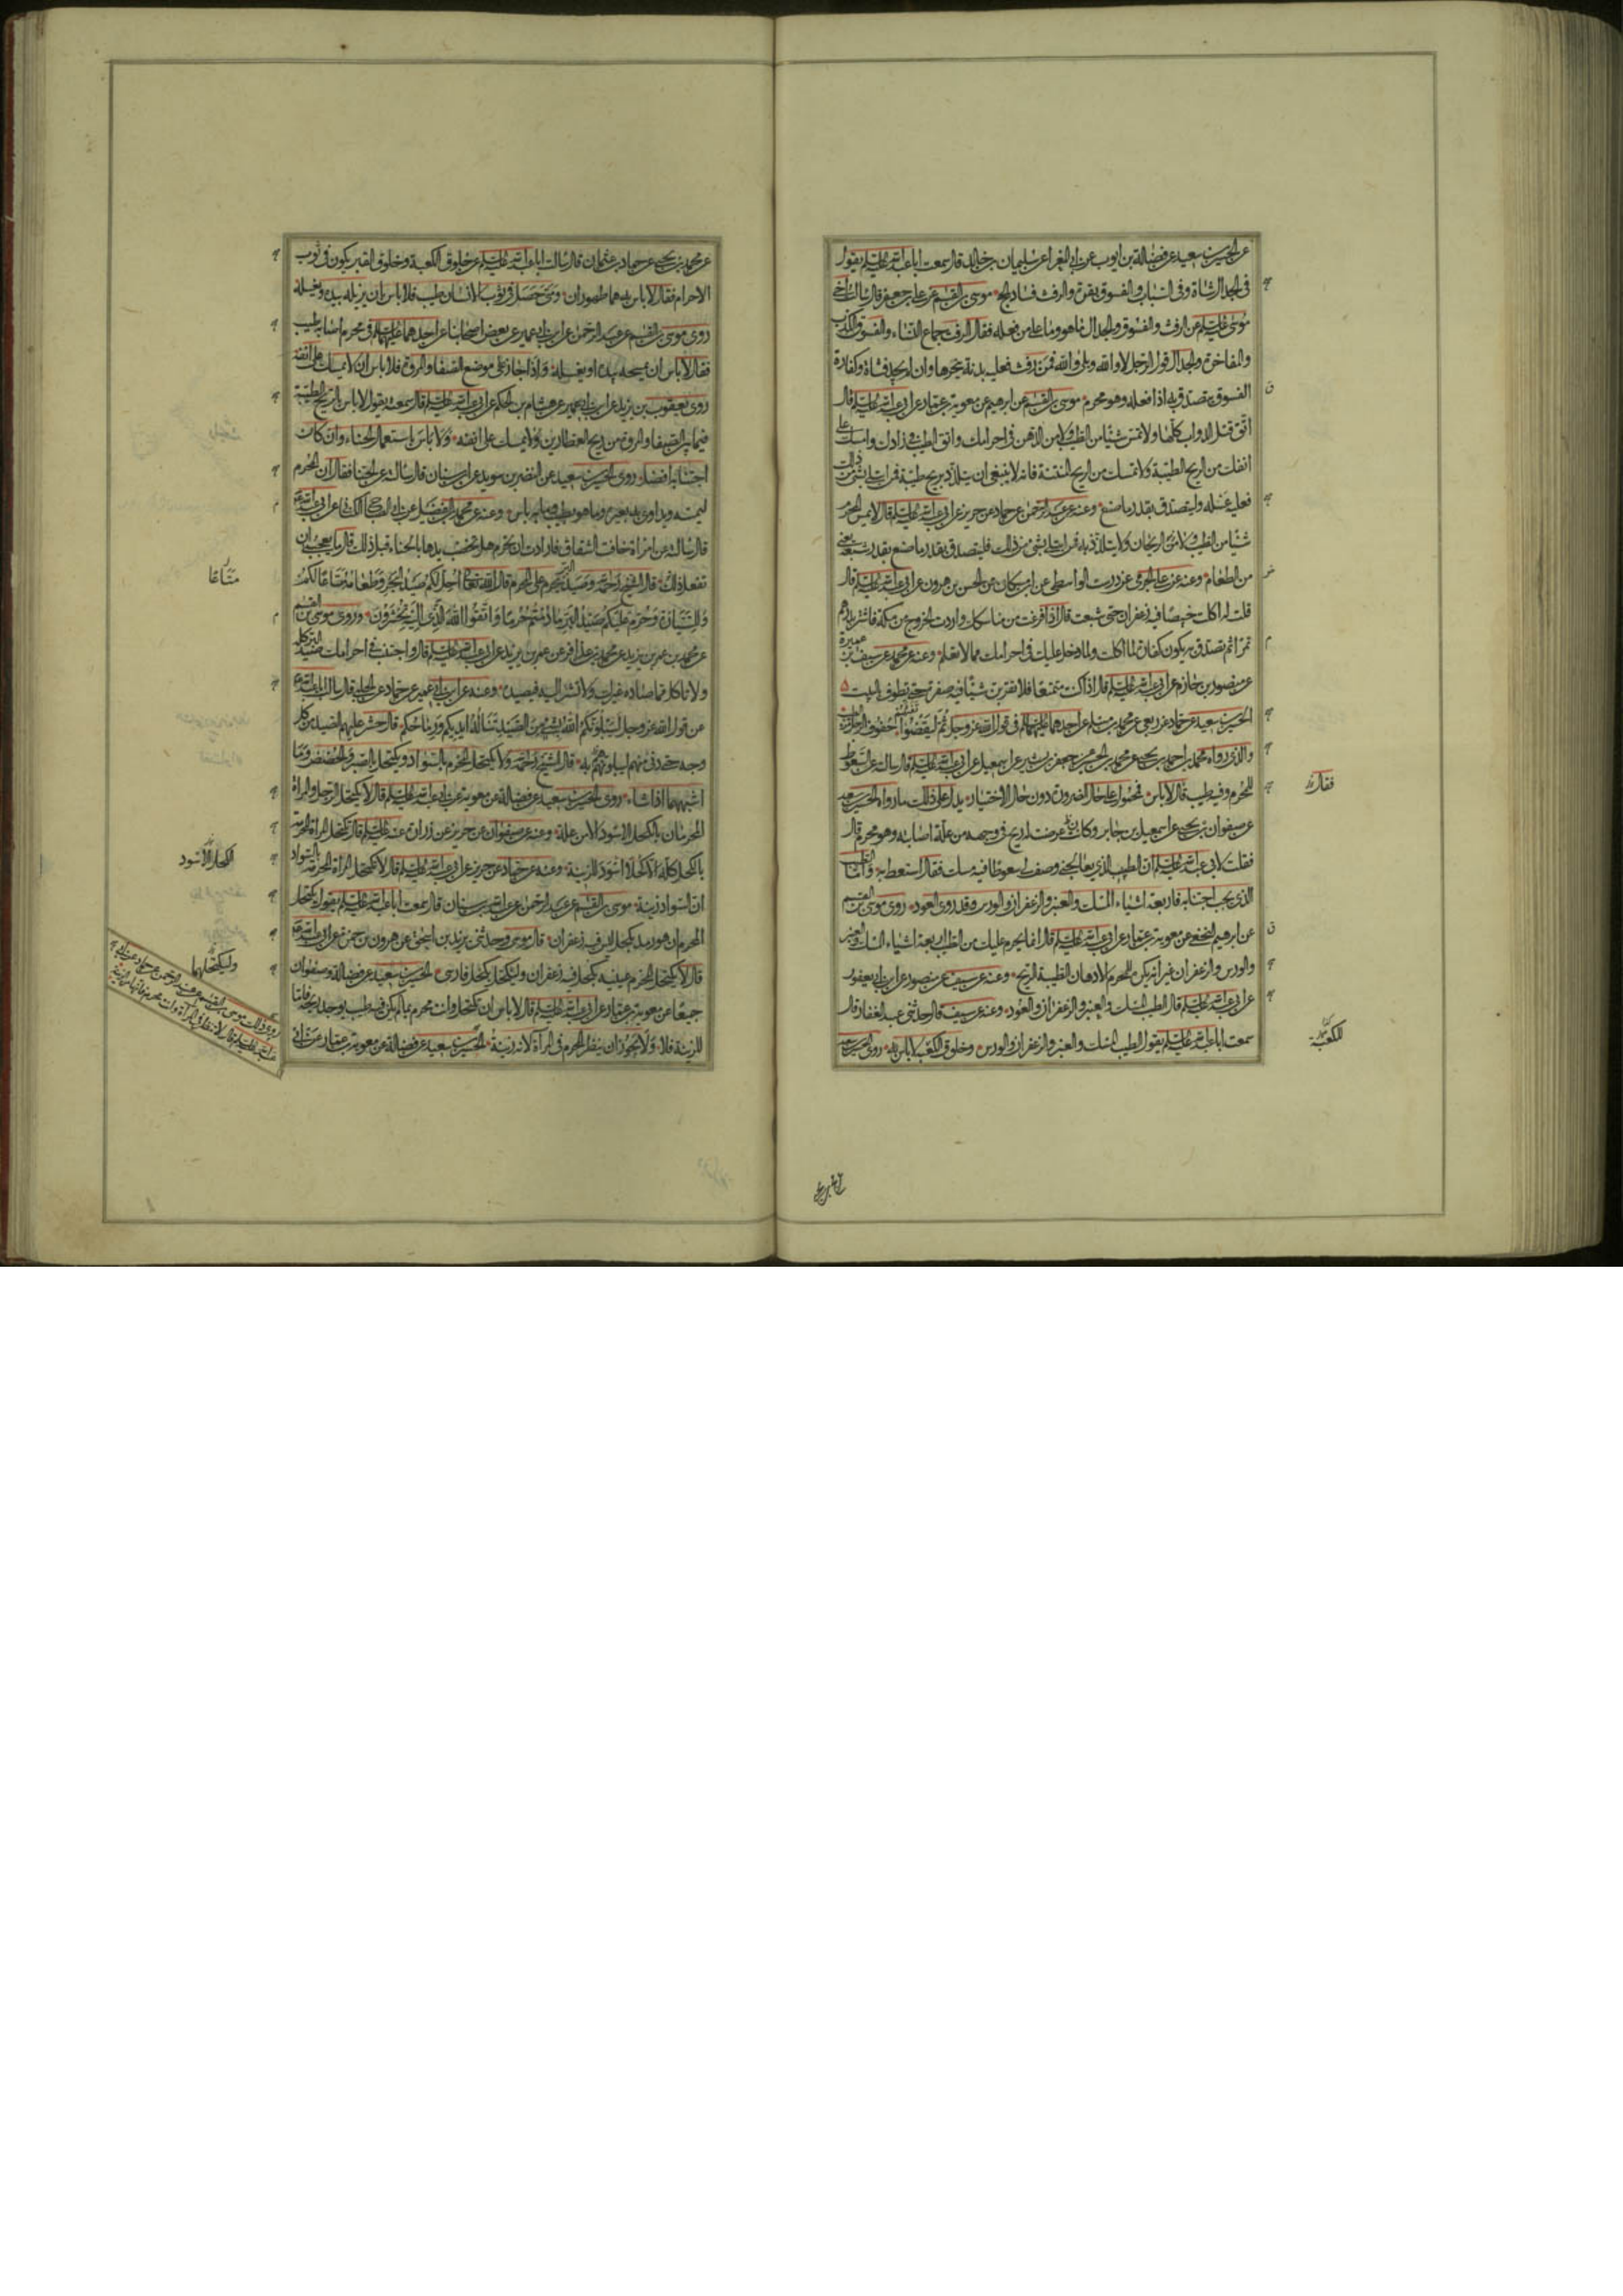 عن الحسين بن سعيد عن فضالة بن ايوب عن ابى المغرا عن سليمان بن خالد قال سمعت ابا عبد الله عليه السلم يقول
فى الجدال شاة وفى السباب والفسوق بقرة والرفث فساد الحج موسى بن القسم عن على بن جعفر قال سالت اخى
موسى عليه السلم عن الرفث والفسوق والجدال ما هو وما على من فعله فقال الرفث جماع النساء والفسوق الكذب
والمفاخرة والجدال قول الرجل لا والله وبلى والله فمن رفث فعليه بدنة ينحرها وان لم يجد فشاة وكفارة
الفسوق يتصدق به اذا فعله وهو محرم موسى بن القسم عن ابرهيم عن معوية بن عمار عن ابى عبد الله عليه السلم قال
اتق قتل الدواب كلها ولا تمس شيئا من الطيب ولا من الدهن فى احرامك واتق الطيب فى زادك وامسك على
انفك من الريح الطيبة ولا تمسك من الريح المنتنة فانه لا ينبغى ان يتلذذ بريح طيبة فمن ابتلى بشئ من ذلك
فعليه غسله وليتصدق بقدر ما صنع وعنه عن عبد الرحمن عن حماد عن حريز عن ابى عبد الله عليه السلم قال لا يمس المحرم
شيئا من الطيب ولا من الريحان ولا يتلذذ به فمن ابتلى بشئ من ذلك فليتصدق بقدر ما صنع بقدر شبعه يعنى
من الطعام وعنه عن على الجرمى عن درست الواسطى عن ابن مسكان عن الحسن بن هرون عن ابى عبد الله عليه السلم قال
قلت له اكلت خبيصا فيه زعفران حتى شبعت قال اذا فرغت من مناسكك واردت الخروج من مكة فاشتر بدرهم
تمرا ثم تصدق به يكون كفارة لما اكلت ولما دخل عليك فى احرامك مما لا تعلم وعنه عن محمد عن سيف بن عميرة
عن منصور بن حازم عن ابى عبد الله عليه السلم قال اذا كنت متمتعا فلا تقربن شيئا فيه صفرة حتى تطوف بالبيت
الحسين بن سعيد عن حماد عن ربعى عن محمد بن مسلم عن احدهما عليهما السلم فى قول الله عز وجل ثم ليقضوا تفثهم حفوف الرجل من الطيب
والذى رواه محمد بن احمد بن يحيى عن محمد بن الحسين عن جعفر بن بشير عن اسمعيل عن ابى عبد الله عليه السلم قال سالته عن السعوط
للمحرم وفيه طيب قال لا باس فمحمول على حال الضرورة دون حال الاختيار يدل على ذلك ما رواه الحسين بن سعيد
فقال
عن صفوان بن يحيى عن اسمعيل بن جابر وكانت عرضت له ريح فى وجهه من علة اصابته وهو محرم قال
فقلت لابى عبد الله عليه السلم ان الطبيب الذى يعالجنى وصف لى سعوطا فيه مسك فقال استعط به واما الطيب
الذى يجب اجتنابه فاربعة اشياء المسك والعنبر والزعفران والورس وقد روى العود روى موسى بن القسم
عن ابرهيم النخعى عن معوية بن عمار عن ابى عبد الله عليه السلم قال انما يحرم عليك من الطيب اربعة اشياء المسك والعنبر
والورس والزعفران غير انه يكره للمحرم الادهان الطيبة الريح وعنه عن سيف عن منصور عن ابن ابى يعفور
عن ابى عبد الله عليه السلم قال الطيب المسك والعنبر والزعفران والعود وعنه عن سيف قال حدثنى عبد الغفار قال
سمعت ابا عبد الله عليه السلم يقول الطيب المسك والعنبر والزعفران والورس وخلوق الكعبة لا باس به روى الحسين بن سعيد
للكعبة
عن محمد بن يحيى عن حماد بن عثمان قال سالت ابا عبد الله عليه السلم عن خلوق الكعبة وخلوق القبر يكون فى ثوب
الاحرام فقال لا باس به هما طهوران ومتى حصل فى ثوب الانسان طيب فلا باس ان يزيله بيده ويغسله
روى موسى بن القسم عن عبد الرحمن عن ابن ابى عمير عن بعض اصحابنا عن احدهما عليهما السلم فى محرم اصابه طيب
فقال لا باس ان يمسحه بيده او يغسله واذا اجاز على موضع الصفا والمروة فلا باس ان لا يمسك على انفه
روى يعقوب بن يزيد عن ابن ابى عمير عن هشام بن الحكم عن ابى عبد الله عليه السلم قال سمعته يقول لا باس بالريح الطيبة
فيما بين الصفا والمروة من ريح العطارين ولا يمسك على انفه ولا باس باستعمال الحناء وان كان
اجتنابه افضل روى الحسين بن سعيد عن النضر بن سويد عن ابن سنان قال سالته عن الحنا فقال ان المحرم
ليمسه ويداوى به بعيره وما هو بطيب وما به باس وعنه عن محمد بن الفضيل عن ابى الصباح الكنانى عن ابى عبد الله ع
قال سالته عن امراة خافت الشقاق فارادت ان تحرم هل تخضب يدها بالحناء قبل ذلك قال ما يعجبنى ان
تفعل ذلك قال الشيخ رحمه الله وصيد البر يحرم على المحرم قال الله تعالى احل لكم صيد البحر وطعامه متاعا لكم
متاعا
وللسيارة وحرم عليكم صيد البر ما دمتم حرما واتقوا الله الذى اليه تحشرون وروى موسى بن القسم
عن محمد بن عمر بن يزيد عن محمد بن عذافر عن عمر بن يزيد عن ابى عبد الله عليه السلم قال واجتنب فى احرامك صيد البر كله
ولا تاكل مما صاده غيرك ولا تشر اليه فيصيده وعنه عن ابن ابى عمير عن حماد عن الحلبى قال سالت ابا عبد الله ع
عن قول الله عز وجل ليبلونكم الله بشئ من الصيد تناله ايديكم ورماحكم قال حشر عليهم الصيد من كل
وجه حتى دنى منهم ليبلونهم به قال الشيخ رحمه الله ولا يكتحل المحرم بالسواد ويكتحل بالصبر والحضض وما
اشبههما اذا شاء روى الحسين بن سعيد عن فضالة عن معوية عن ابى عبد الله عليه السلم قال لا يكتحل الرجل والمراة
المحرمان بالكحل الاسود الا من علة وعنه عن صفوان عن حريز عن زرارة عنه عليه السلم قال تكتحل المراة المحرمة
بالكحل كله الا كحلا اسود للزينة وعنه عن حماد عن حريز عن ابى عبد الله عليه السلم قال لا تكتحل المراة المحرمة بالسواد
الكحل الاسود
ان السواد زينة موسى بن القسم عن عبد الرحمن عن عبد الله بن سنان قال سمعت ابا عبد الله عليه السلم يقول يكتحل
المحرم ان هو رمد بكحل ليس فيه زعفران قال موسى وحدثنى يزيد بن اسحق عن هرون بن حمزة عن ابى عبد الله ع
قال لا يكحل المحرم عينيه بكحل فيه زعفران وليكتحل بكحل فارسى الحسين بن سعيد عن فضالة وصفوان
وليكحلهما
جميعا عن معوية بن عمار عن ابى عبد الله عليه السلم قال لا باس ان تكتحل وانت محرم بما لم يكن فيه طيب يوجد ريحه فاما
للزينة فلا ولا يجوز ان ينظر المحرم فى المرآة لانه زينة الحسين بن سعيد عن فضالة عن معوية بن عمار عن ابى
روى ذلك موسى بن القسم عن عبد الرحمن عن حماد عن ابى
عبد الله عليه السلم قال لا تنظر فى المرآة وانت محرم فانها من الزينة